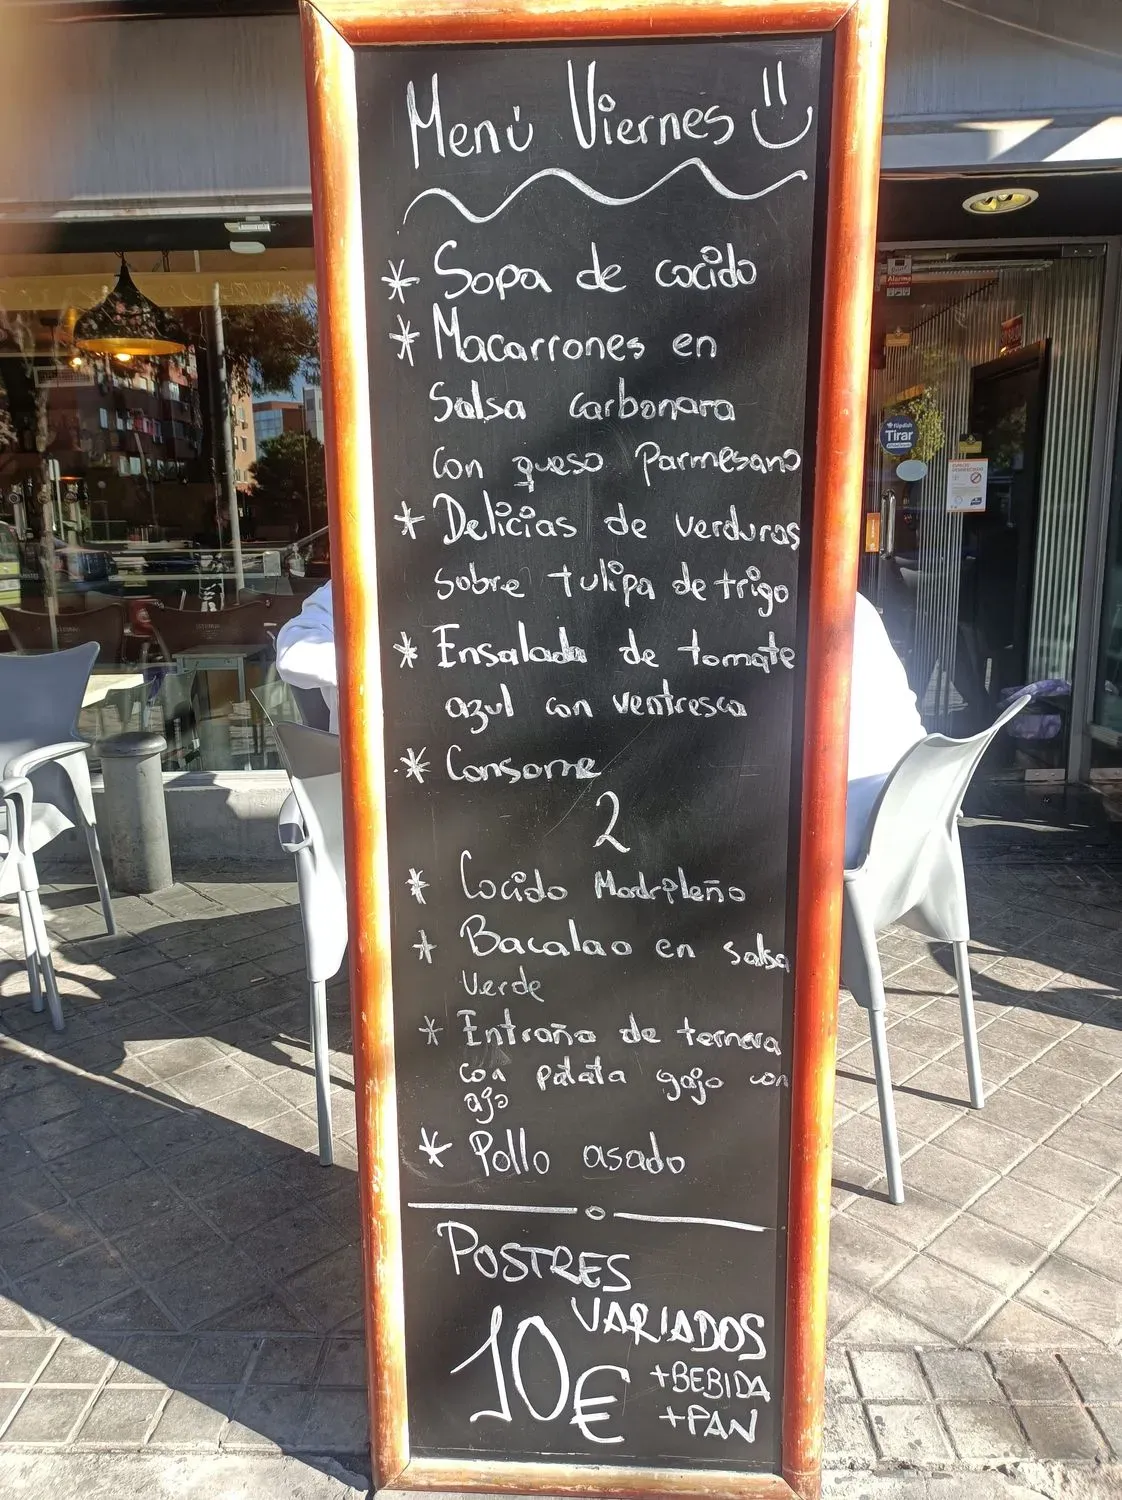 Menú Viernes
* Sopa de cocido
* Macarrones en
Salsa carbonara
con queso Parmesano
* Delicias de verduras
sobre tulipa de trigo
* Ensalada de tomate
azul con ventresca
* Consome
2
* Cocido Madrileño
* Bacalao en salsa
verde
* Entraña de ternera
con patata gajo con
ajo
* Pollo asado
POSTRES
VARIADOS
10€
+BEBIDA
+PAN
Alarma
flipdish
Tirar